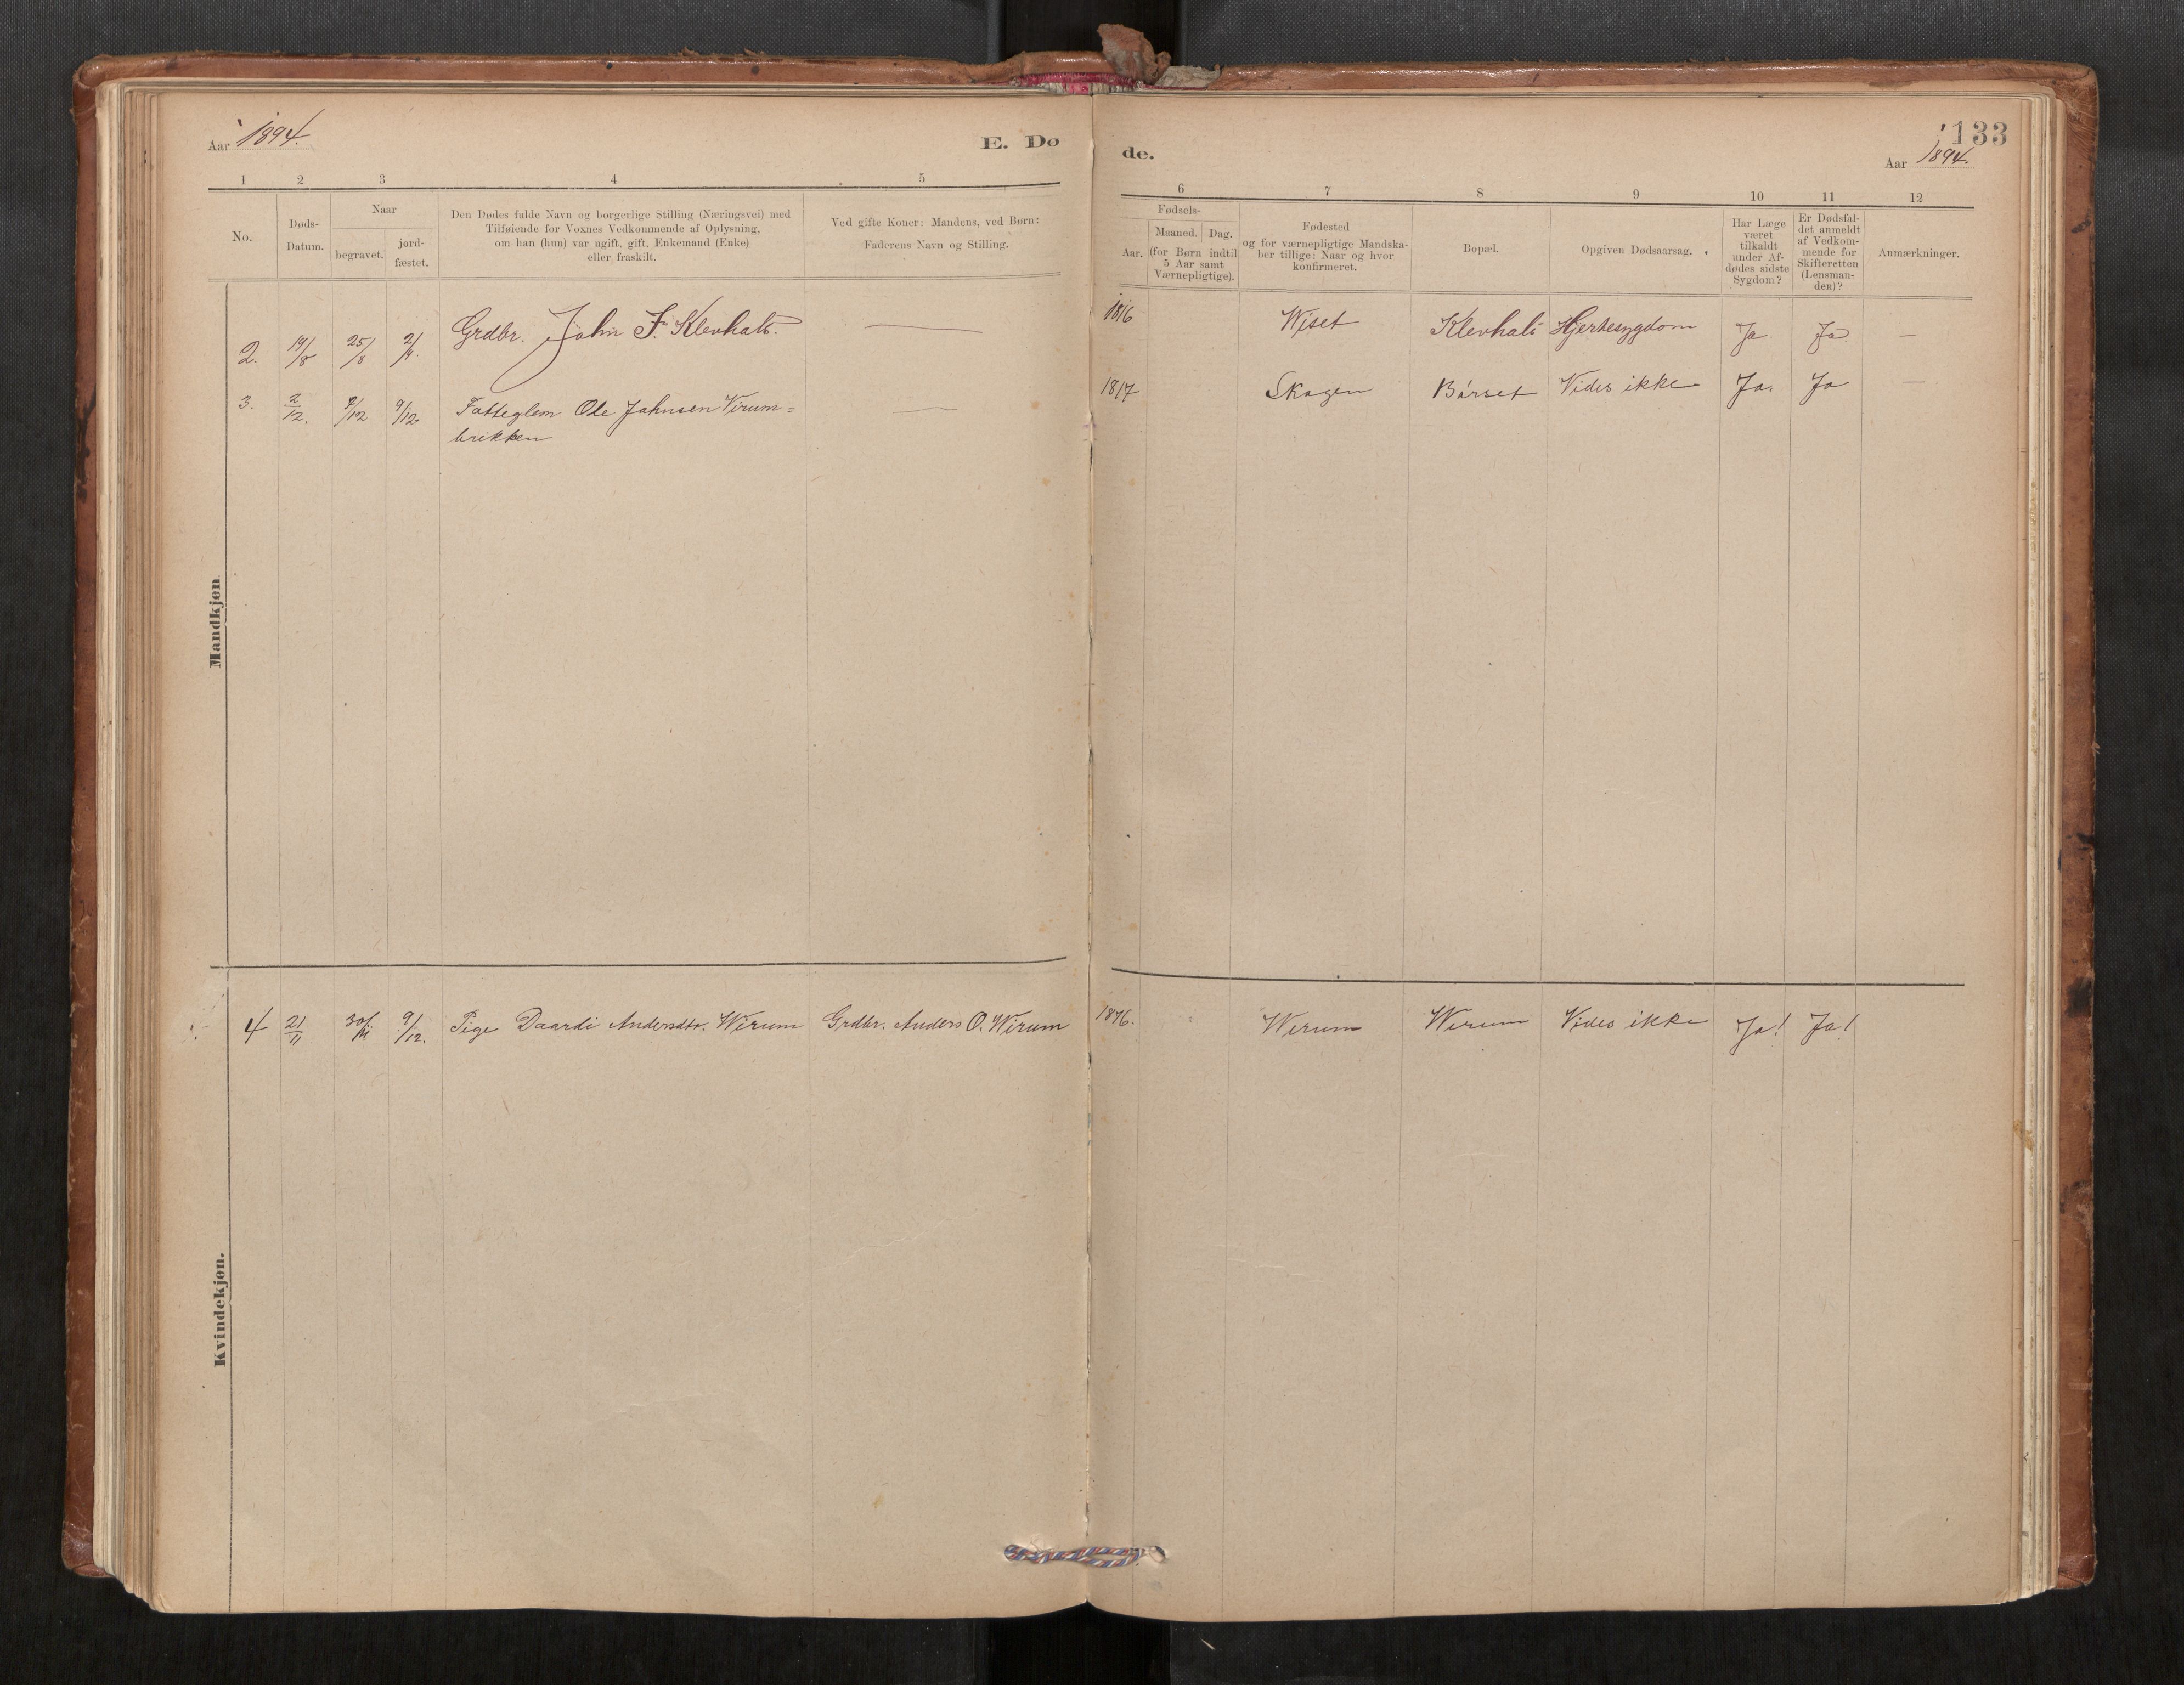 Aar 1894.
E. Dø
1 2 3 4 5
No.
Døds-
Datum.
Naar
begravet.
jord-
fæstet.
Den Dødes fulde Navn og borgerlige Stilling (Næringsvei) med
Tilføiende for Voxnes Vedkommende af Oplysning,
om han (hun) var ugift, gift, Enkemand (Enke)
eller fraskilt.
Ved gifte Koner: Mandens, ved Børn:
Faderens Navn og Stilling.
Mandkjøn
2. 19/8 25/8 2/9. Grdbr. John F. Klevhals. —
3. 2/12. 9/12 9/12 Fatteglem Ole Johnsen Virum=
brikken —
Kvindekjøn.
4 21/11 30/11 9/12. Pige Daardi Andersdtr. Wirum Grdbr. Anders O. Wirum
133
de.
Aar 1894.
6 7 8 9 10 11 12
Fødsels-
Aar.
Maaned. Dag.
(for Børn indtil
5 Aar samt
Værnepligtige).
Fødested
og for værnepligtige Mandska-
ber tillige: Naar og hvor
konfirmeret.
Bopæl.
Opgiven Dødsaarsag.
Har Læge
været
tilkaldt
under Af-
dødes sidste
Sygdom?
Er Dødsfal-
det anmeldt
af Vedkom-
mende for
Skifteretten
(Lensman-
den)?
Anmærkninger.
1816 Wiset Klevhals Hjertesygdom Ja. Ja. —
1817 Skogen Börset Vides ikke Ja. Ja —
1876. Wirum Wirum Vides ikke Ja! Ja!